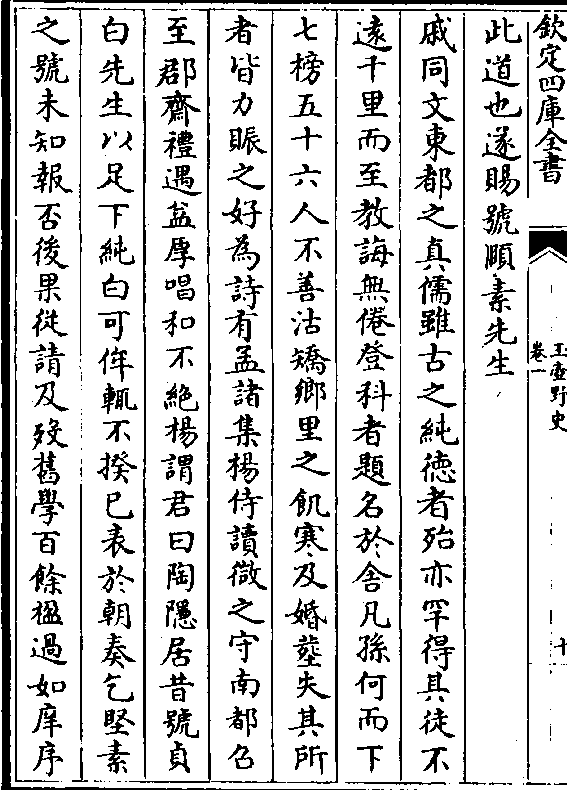 欽定四庫全書
玉壺野史
卷一
十
此道也遂賜號頤素先生
戚同文東都之真儒雖古之純徳者殆亦罕得其徒不
逺千里而至教誨無倦登科者題名於舍凡孫何而下
七榜五十六人不善沽矯鄉里之飢寒及婚塟失其所
者皆力賑之好為詩有孟諸集楊侍讀徽之守南都召
至郡齋禮遇益厚唱和不絶楊謂君曰陶隱居昔號貞
白先生以足下純白可侔輒不揆已表於朝奏乞堅素
之號未知報否後果從請及歿舊學百餘楹過如庠序